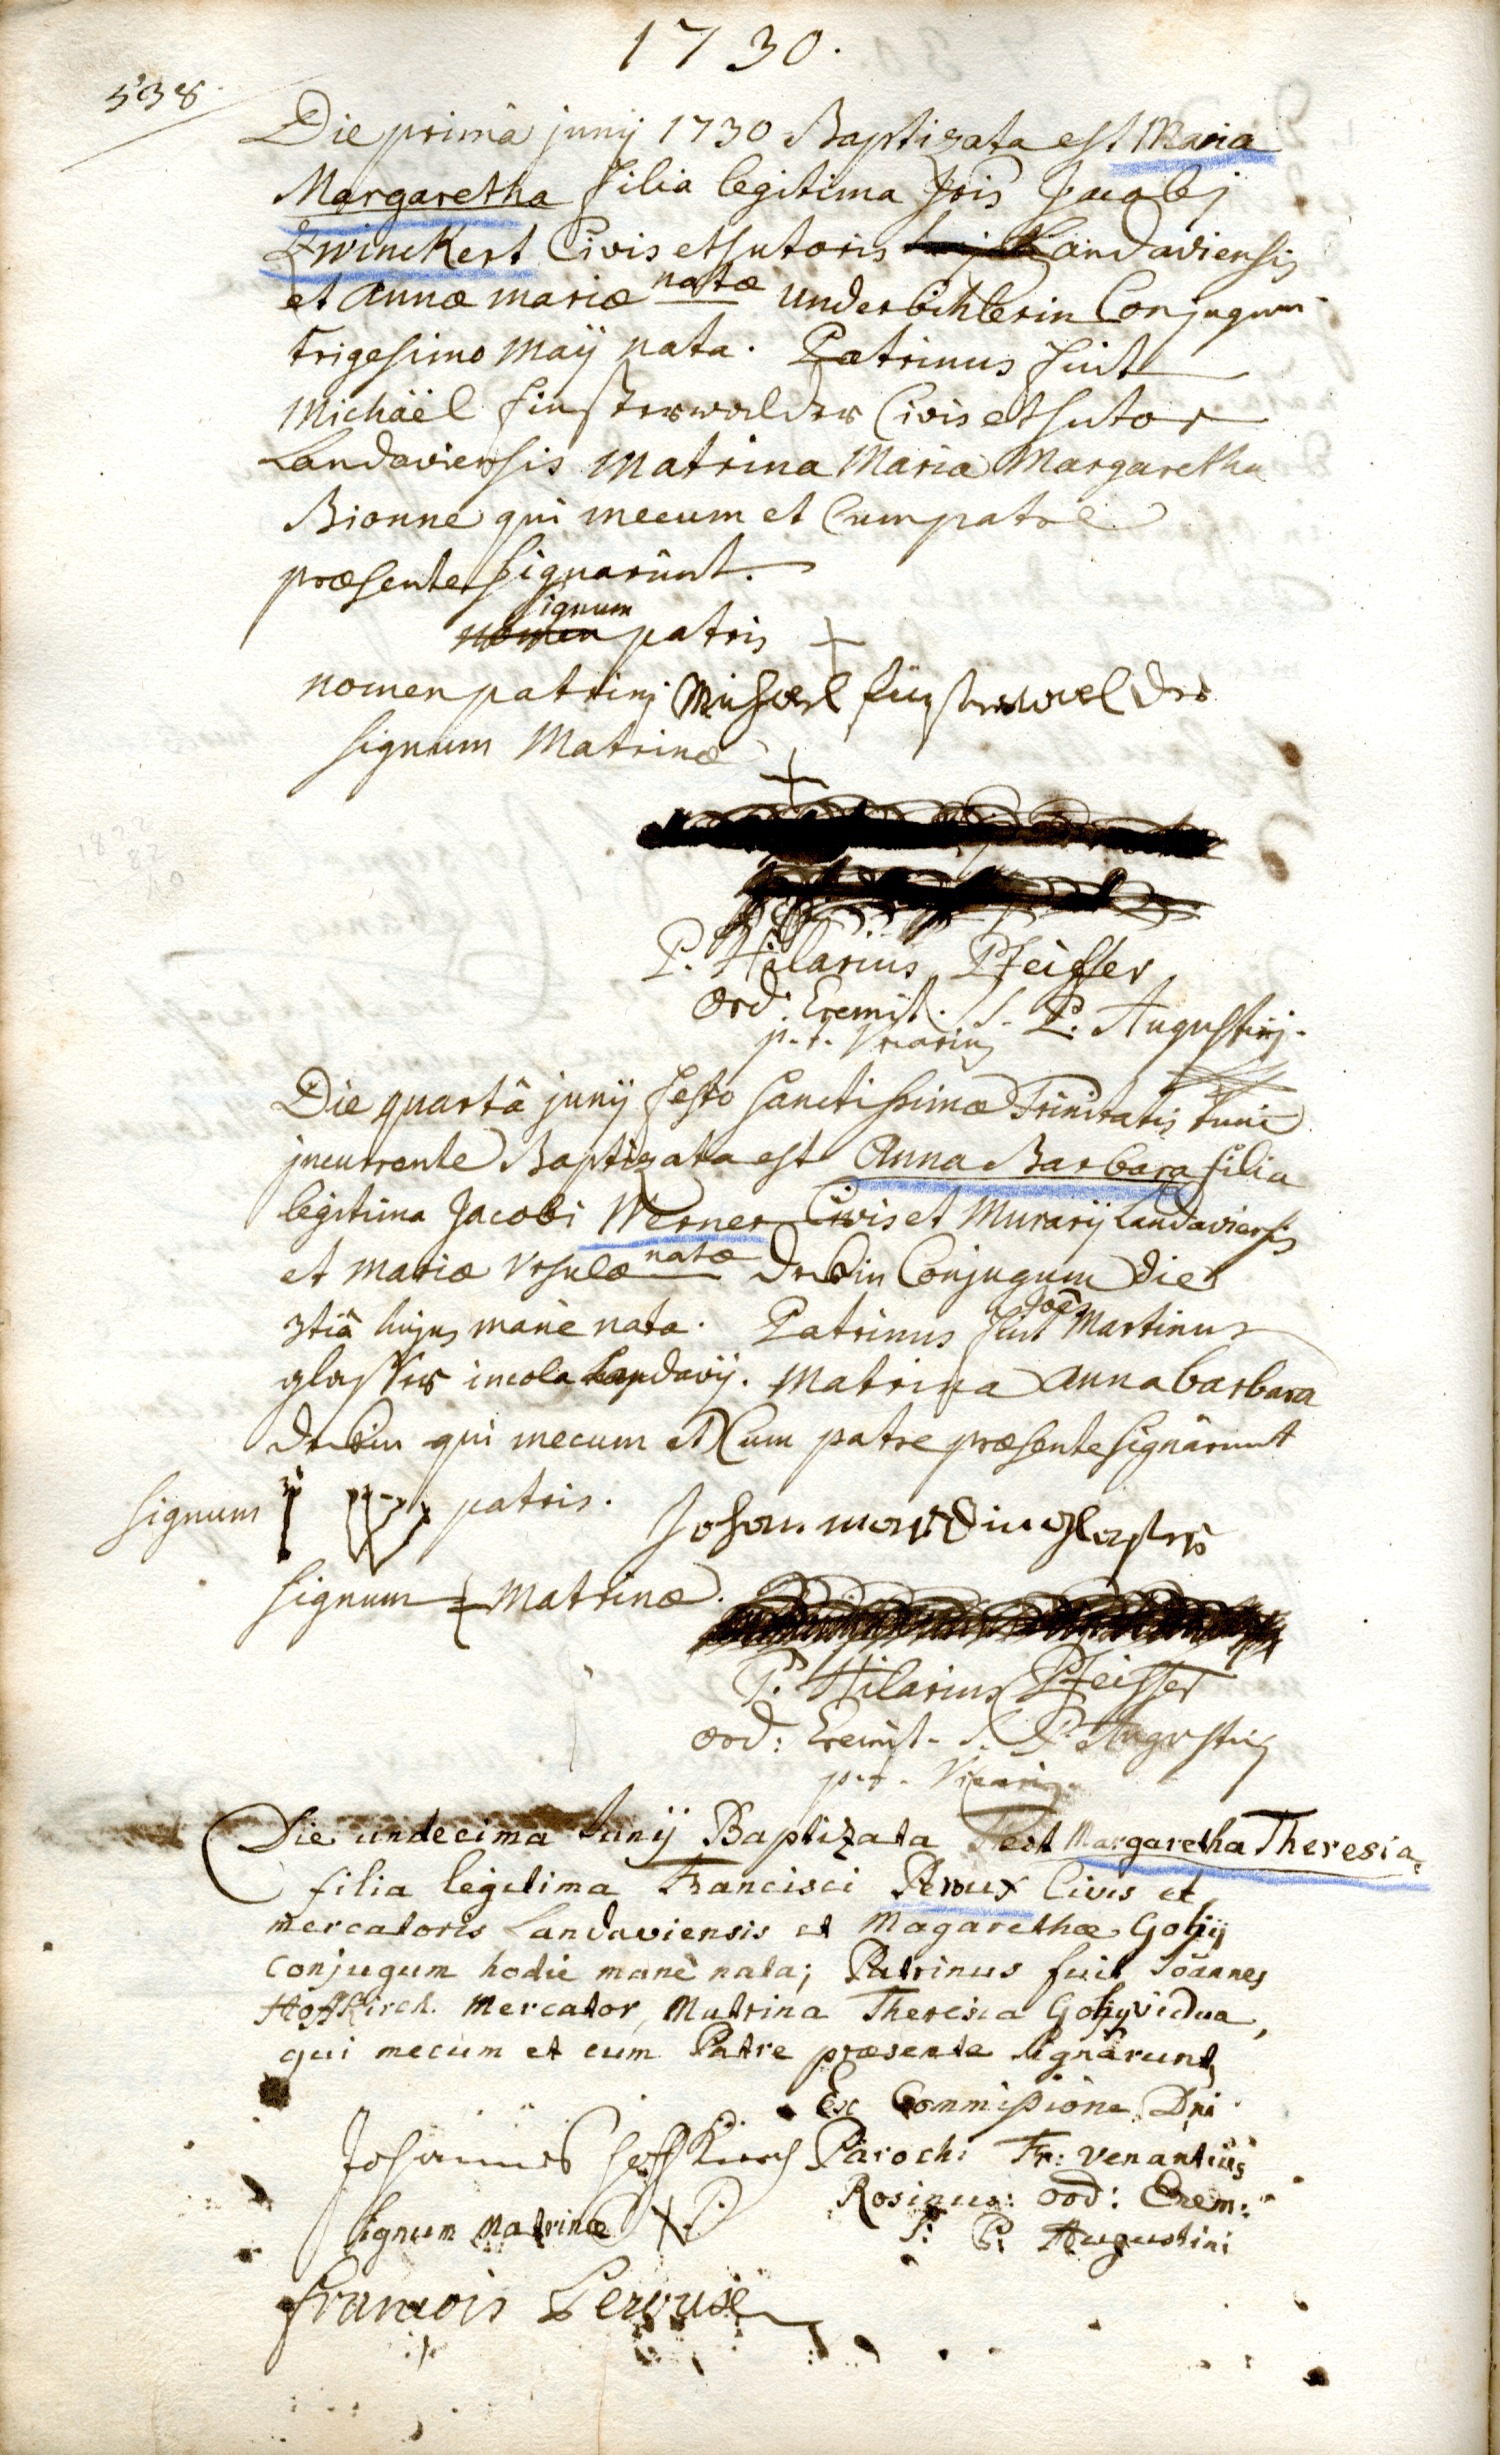 1730.
538
Die primâ junij 1730 Baptizata est Maria
Margaretha filia legitima Jois Jacobj
Zwinckert Civis et sutoris Landaviensis
et Annæ mariæ natæ Underbichlerin Conjugum
trigesimo Maij nata. Patrinus fuit
Michäel finsterwalder Civis et sutor
Landaviensis Matrina Maria Margaretha
Bionne qui mecum et Cum patre
præsente signarunt.
signum
nomen patris +
nomen patrinj Michael
signum Matrinæ +
P. Hilarius Pfeiffer
Ord: Eremit. S. P. Augustinj.
p.t. Vicarius
Die quartâ junij festo sanctissimæ Trinitatis tunc
jncurrente Baptizata est Anna Barbara filia
legitima Jacobi Werner Civis et Murarij Landaviensis
et Mariæ Ursulæ natæ Conjugum die
3tiâ hujus manè nata. Patrinus fuit Joês Martinus
glasser incola Landavij. Matrina Anna barbara
qui mecum et Cum patre præsente signârunt
signum patris. Johan
signum + Matrinæ.
P. Hilarius Pfeiffer
Ord: Eremit. S. P. Augustinj
p.t. Vicarius
Die undecima Junij Baptizata est Margaretha Theresia,
filia legitima Francisci Peroux Civis et
mercatoris Landaviensis et Magarethæ Gohij
conjugum hodie manè nata; Patrinus fuit Joannes
Hoffkirch. Mercator, Matrina Theresia Gohy vidua,
qui mecum et cum Patre præsente signârunt,
Ex Commissione Dni
Johannes Hoffkirch Parochi Fr: Venantius
Rosinus: Ord: Erem:
signum Matrinæ X S: P: Augustini
francois Peroux